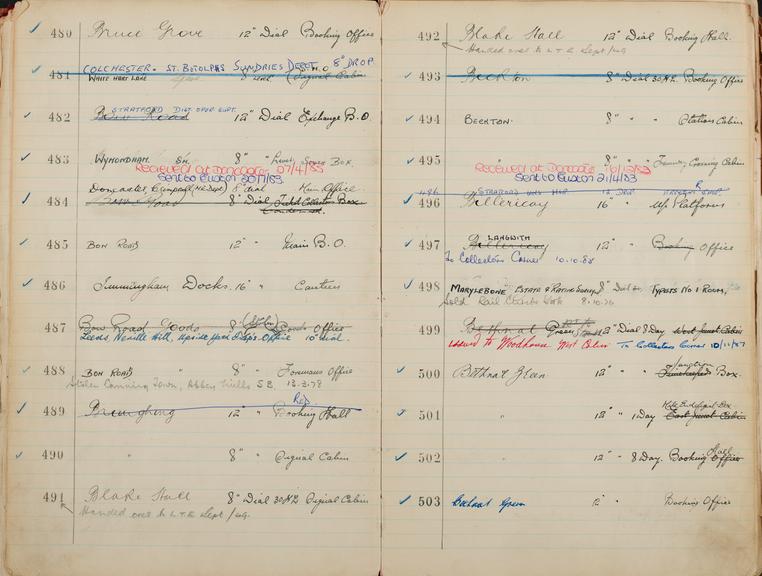 480 Bruce Grove 12" Dial Booking Office
COLCHESTER. ST. BOTOLPHS SUNDRIES DEPOT 8" DROP
481 WHITE HART LANE 8" Signal Cabin
STRATFORD DIST. OPER. SUPT.
482 Bow Road 12" Dial Exchange B.O
483 WYMONDHAM 8" Box.
Received at Doncaster 07/4/83
Sent to Euston
Doncaster 8" dial Main Office
484 Bow Road 8" Dial Ticket Collector Box
Condemned.
485 BOW ROAD 12" " Main B.O.
486 Immingham Docks. 16" " Canteen
487 Bow Road Goods 8" Goods Office
Leeds, Neville Hill, Office 10" dial.
488 BOW ROAD 8" " Foremans Office
Stolen Canning Town, Abbey Mills S.B. 13-3-78
Rep.
489 12" " Booking Hall
490 " 8" " Signal Cabin
491 Blake Hall 8" Dial 30 Hr Signal Cabin
Handed over to L.T.E Sept/49.
492 Blake Hall 12" Dial Booking Hall.
Handed over to L.T.E Sept/49
493 Beckton 8" Dial 30 Hr. Booking Office
494 BECKTON. 8" " " Station Cabin
495 " 8" " " Crossing Cabin
Received at Doncaster
Sent to Euston 21/4/83
496 STRATFORD 12" DROP
496 Billericay 16" " Up Platform
LANGWITH
497 Billericay 12" " Booking Office
To Collectors Corner 10.10.88
498 MARYLEBONE ESTATE & RATING SURVEYOR 8" TYPISTS NO 1 ROOM,
Sold Rail Clerks Work 8.10.76
499 Bethnal Green 12" Dial 8 Day West Junct Cabin
Issued to Woodhouse West Cabin To Collectors Corner 10/11/87
Junction
500 Bethnal Green 12" " Box.
501 " 12" " 1 Day East Junct Cabin
Hall
502 " 12" " 8 Day. Booking Office
503 Bethnal Green " Booking Office